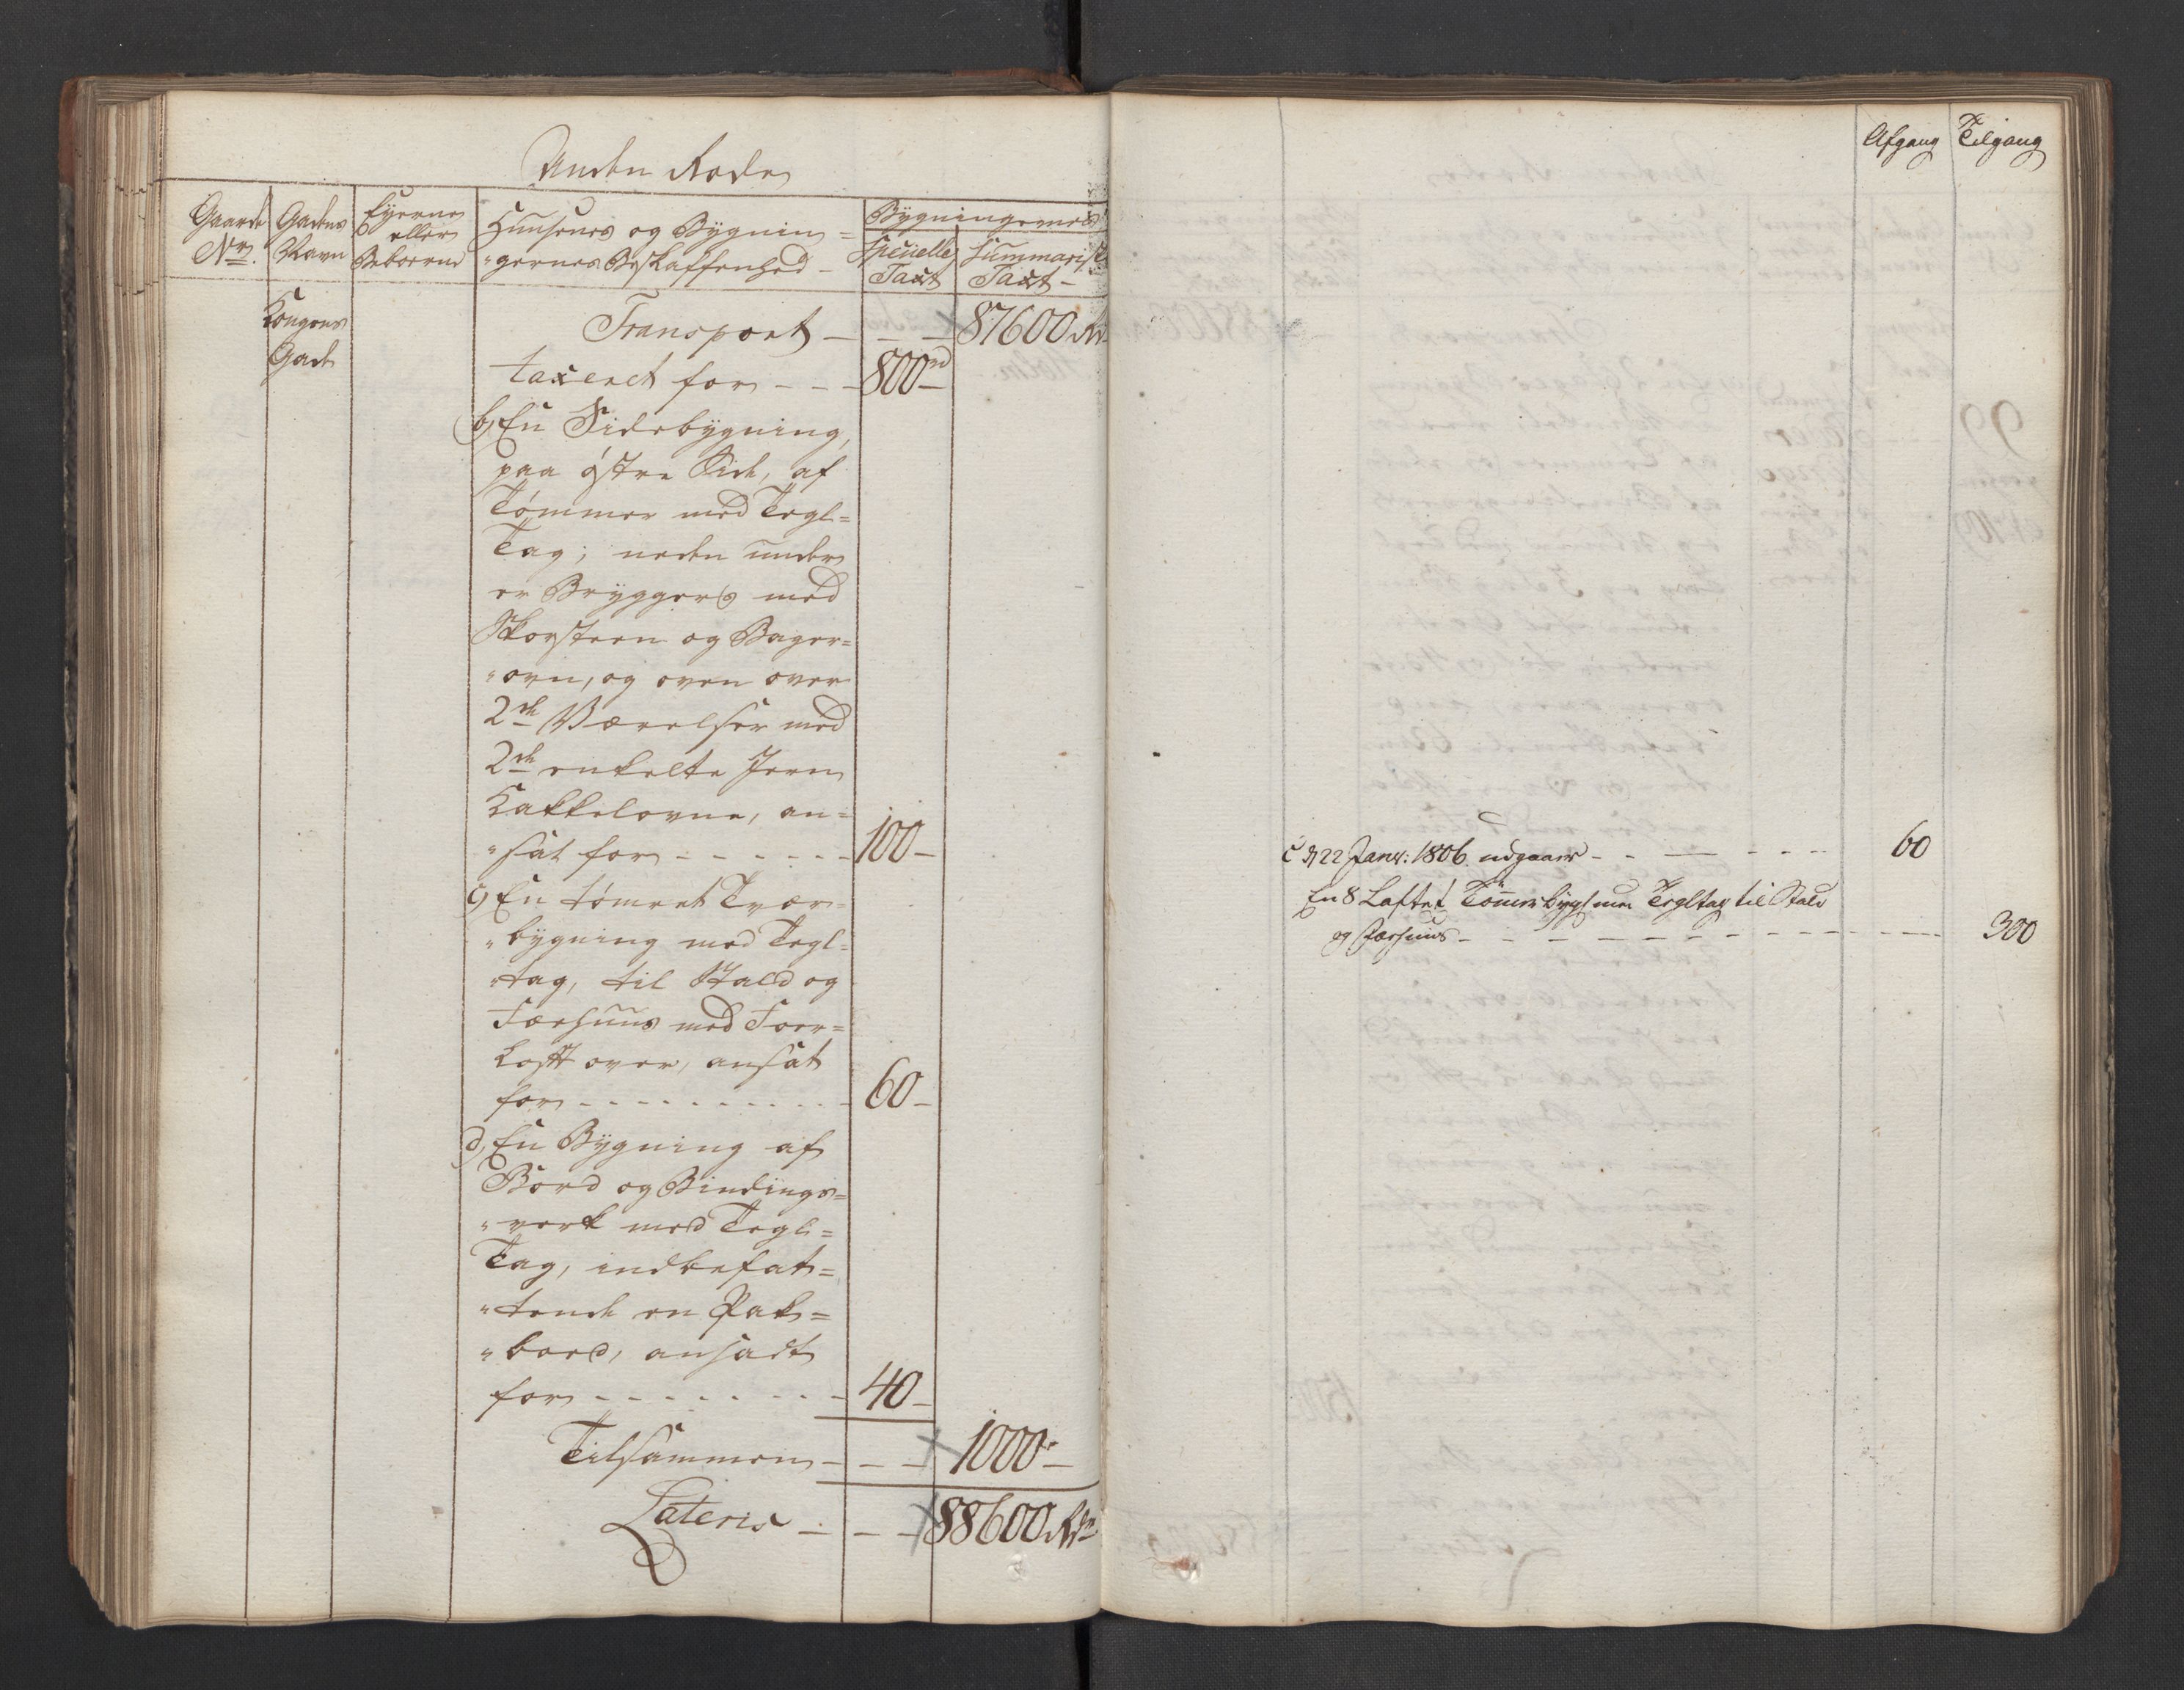 Anden Rode
Gaarde
No.
Gadens
Navn
Eyerne
eller
Beboerne
Huusenes og Bygnin=
"gernes Beskaffenhed -
Bygningernes
Specielle
Taxt
Summariske
Taxt -
Kongens
Gade
Transport - - - - 87600 Rd
taxeret for - - - 800 rd
b, En Sidebygning,
paa östre Side, af
Tömmer med Tegl=
Tag; neden under
er Bryggers med
Skorsteen og Bager=
"ovn, og oven over
2de Værelser med
2de enkelte Jern
Kakkelovne, an=
"sat for - - - - - - 100 -
c, En tömret Tvær=
"bygning med Tegl=
"tag, til Stald og
Færhuus med Foer=
Loft over, ansat
for - - - - - - - - - - 60 -
d, En Bygning af
Bord og Bindings=
"verk med Tegl=
Tag, indbefat=
"tende en Pak=
"boed, ansadt
for - - - - - - - - - 40 -
Tilsammen - - - 1000 -
Lateris - - - 88600 Rdr
Afgang
Tilgang
c d 22 Janv: 1806. udgaaer - - - - - - 60
En 8 Laftet Tömmerbygt med Tegltag til Stald
og Færhuus - - - - - - - - - - - - 300